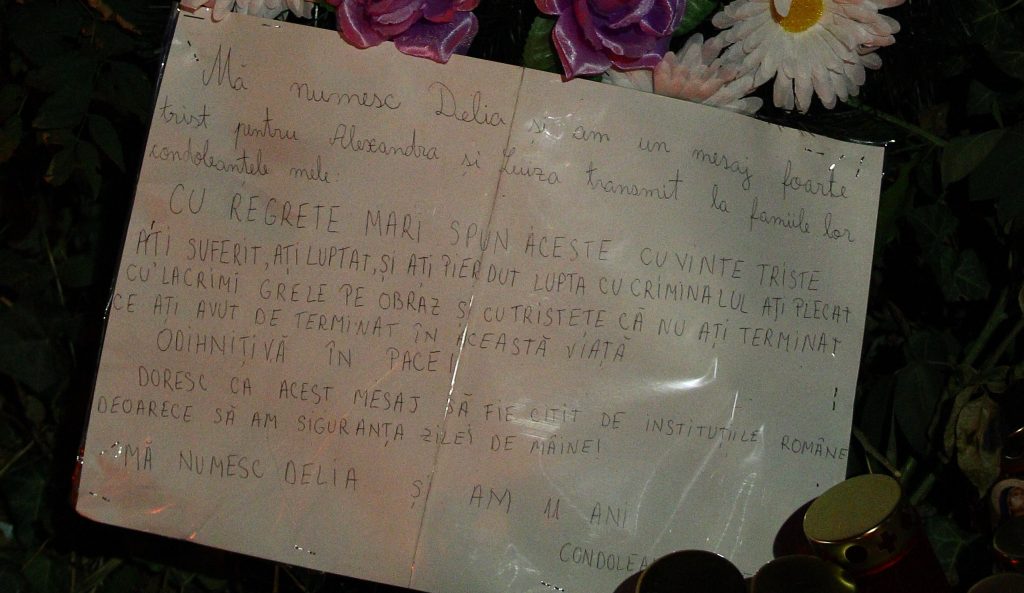 Mă numesc Delia și am un mesaj foarte
trist pentru Alexandra și Luiza transmit la famiile lor
condoleanțele mele:
CU REGRETE MARI SPUN ACESTE CUVINTE TRISTE
AȚI SUFERIT, AȚI LUPTAT, ȘI AȚI PIERDUT LUPTA CU CRIMINALUL AȚI PLECAT
CU LACRIMI GRELE PE OBRAZ ȘI CU TRISTEȚE CĂ NU AȚI TERMINAT
CE AȚI AVUT DE TERMINAT ÎN ACEASTĂ VIAȚĂ
ODIHNIȚIVĂ ÎN PACE!
DORESC CA ACEST MESAJ SĂ FIE CITIT DE INSTITUȚIILE ROMÂNE
DEOARECE SĂ AM SIGURANȚA ZILEI DE MÂINE!
MĂ NUMESC DELIA ȘI AM 11 ANI
CONDOLEAN